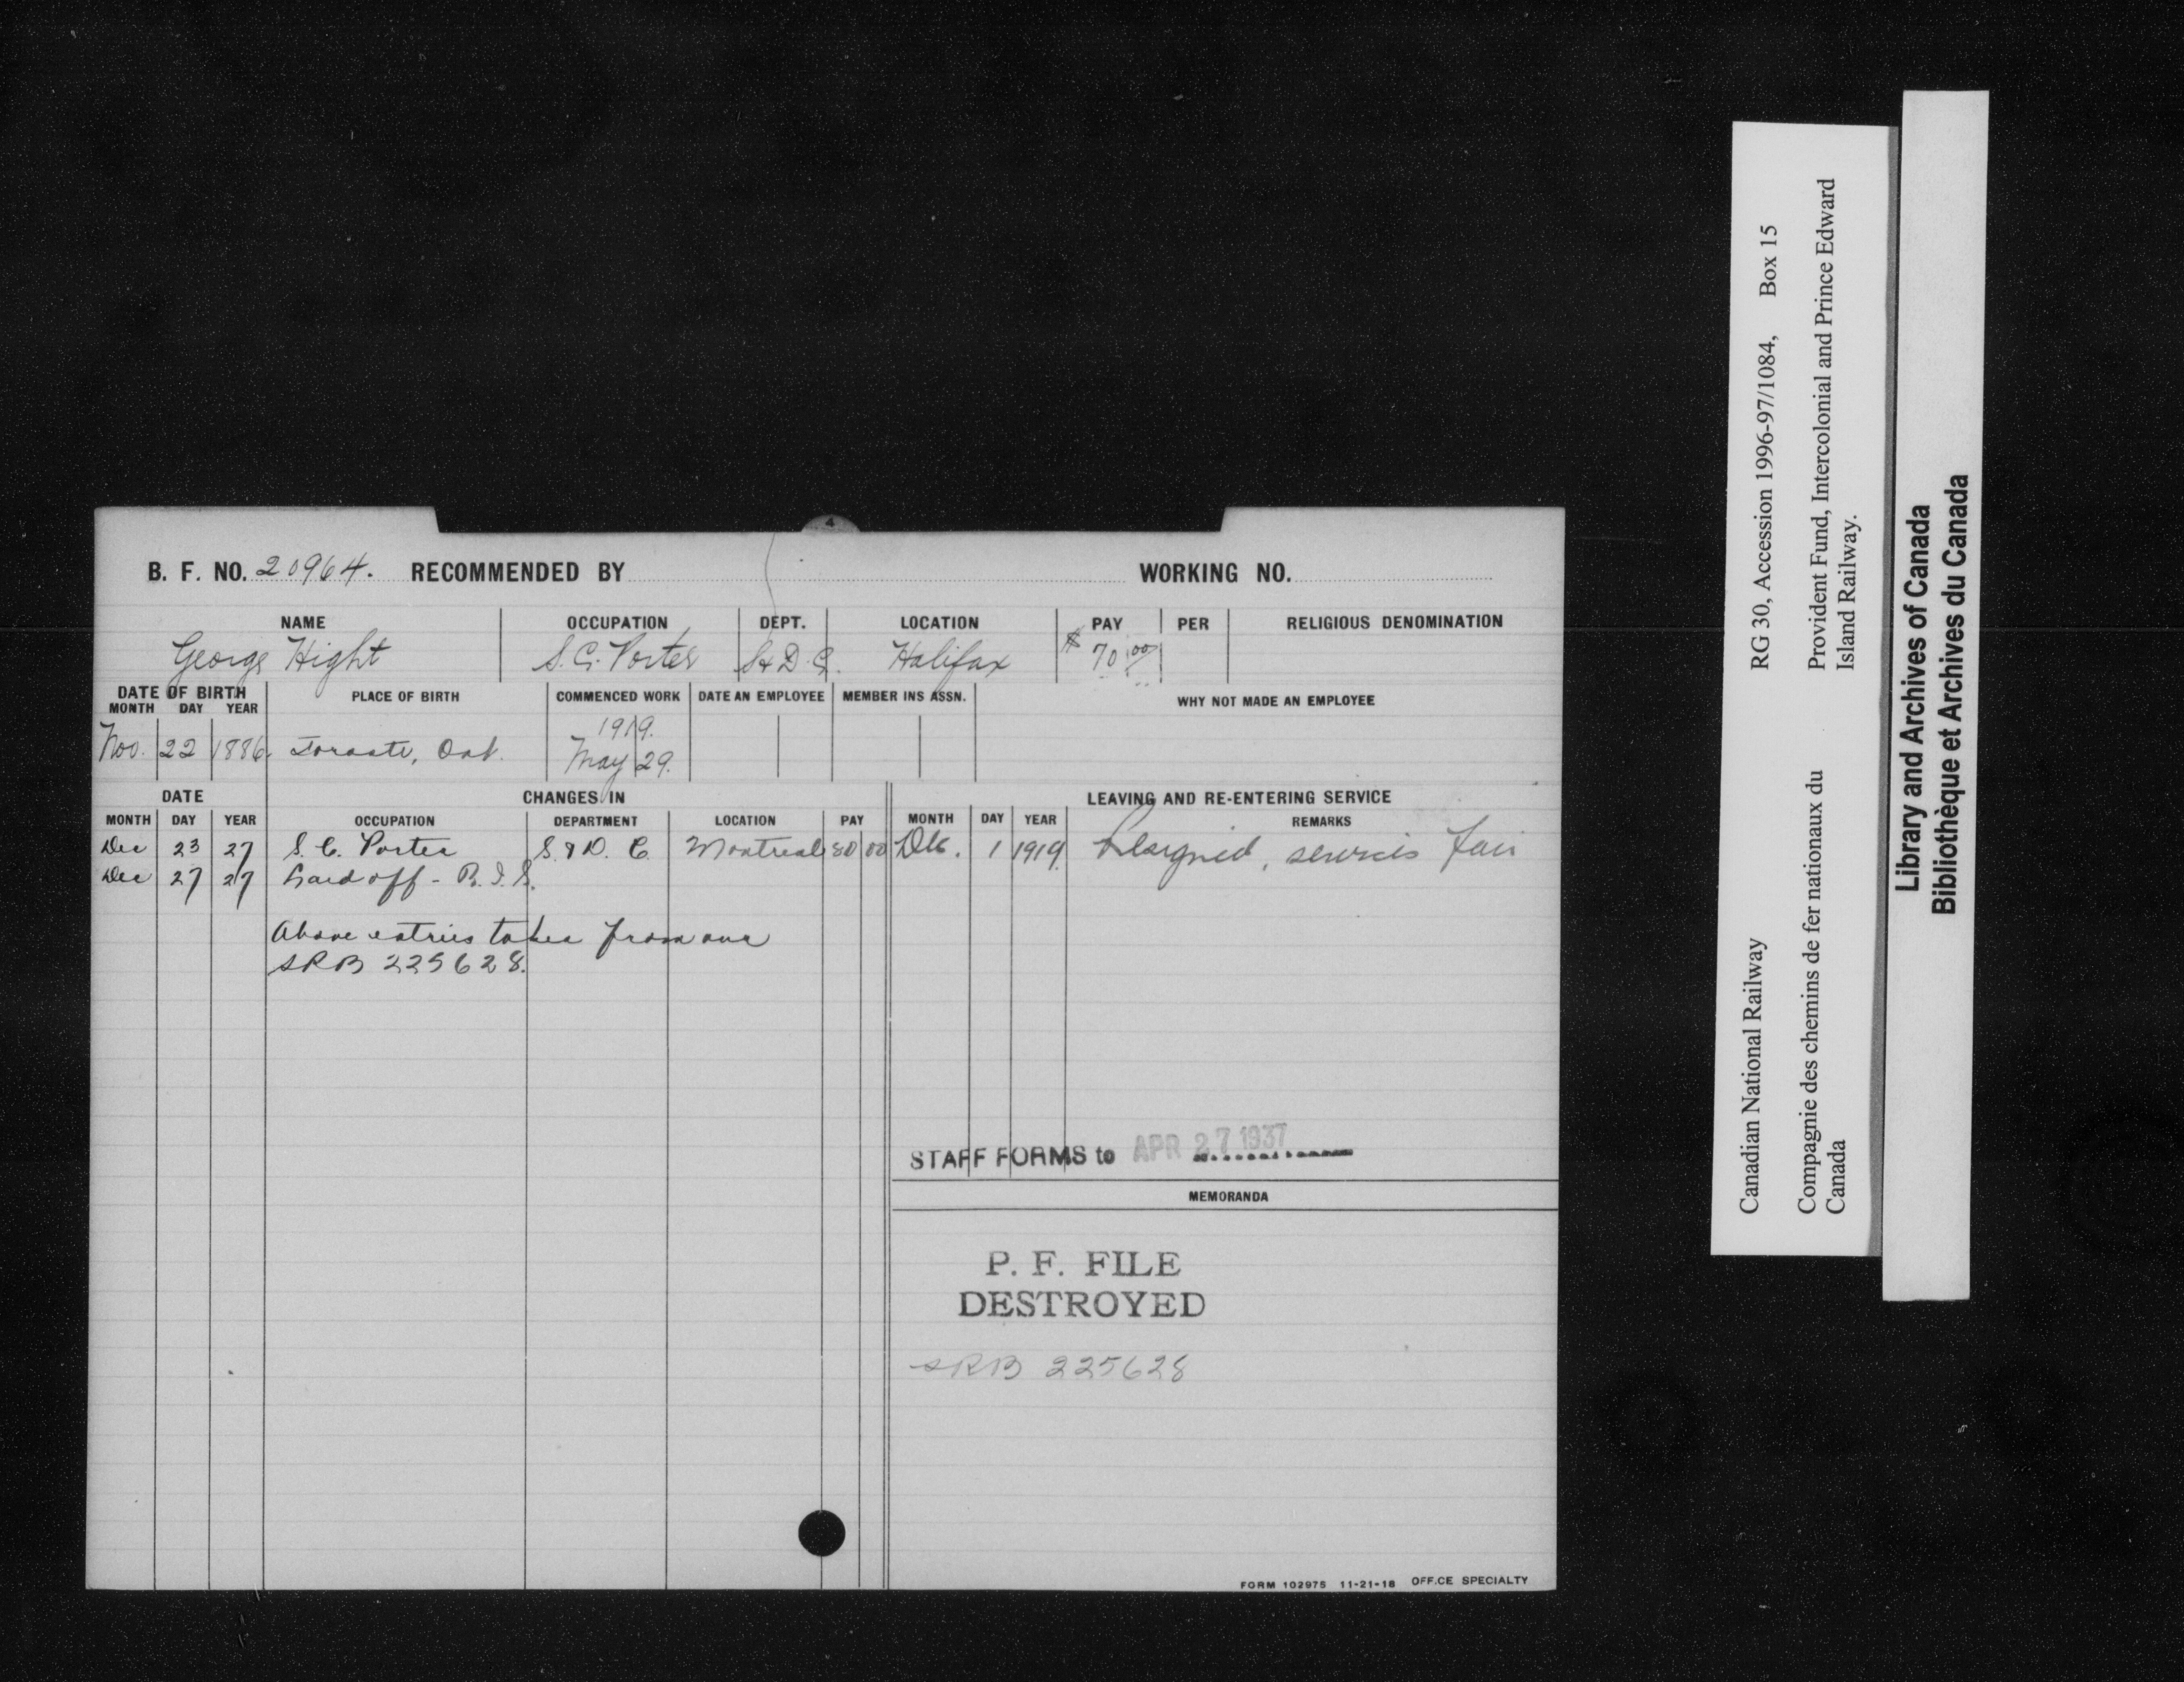 4
B. F. NO. 20964. RECOMMENDED BY WORKING NO.
NAME OCCUPATION DEPT. LOCATION PAY PER RELIGIOUS DENOMINATION
George Hight S.C. Porter S&D.C. Halifax $70.00
DATE OF BIRTH PLACE OF BIRTH COMMENCED WORK DATE AN EMPLOYEE MEMBER INS ASSN. WHY NOT MADE AN EMPLOYEE
MONTH DAY YEAR
1919.
Nov. 22 1886. Toronto, Ont. May 29.
DATE CHANGES IN LEAVING AND RE-ENTERING SERVICE
MONTH DAY YEAR OCCUPATION DEPARTMENT LOCATION PAY MONTH DAY YEAR REMARKS
Dec 23 27 S. C. Porter S. & D. C. Montreal 80 00 Dec. 1 1919. Resigned, services fair
Dec 27 27 Laid off - R.I.S.
Above entries taken from our
SRB 225628.
STAFF FORMS to APR 27 1937
MEMORANDA
P. F. FILE
DESTROYED
SRB 225628
FORM 102975 11-21-18 OFFICE SPECIALTY
Canadian National Railway RG 30, Accession 1996-97/1084, Box 15
Compagnie des chemins de fer nationaux du Provident Fund, Intercolonial and Prince Edward
Canada Island Railway.
Library and Archives of Canada
Bibliothèque et Archives du Canada